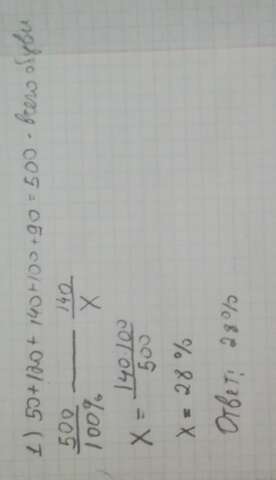 1) 50+120+140+100+90=500 - всего обуви
500/100% — 140/X
X = 140 100/500
X = 28%
Ответ: 28%